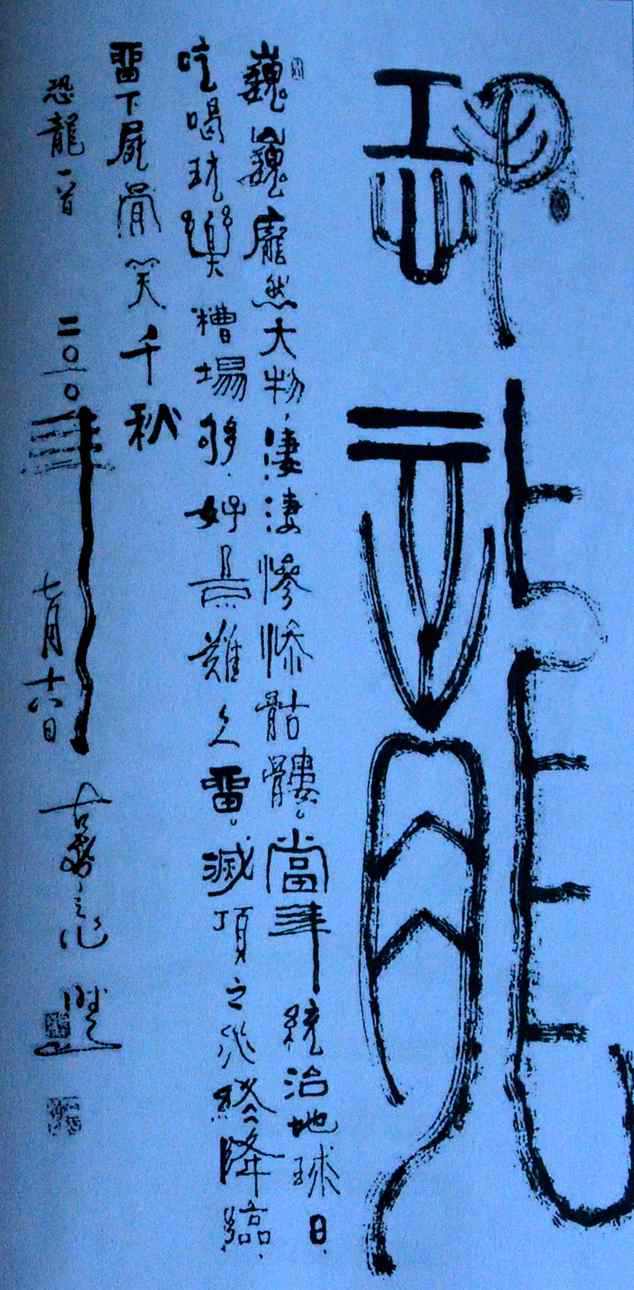 恐龍
巍巍龐然大物，淒淒慘慘骷髏。當年統治地球日，
吃喝玩樂糟塌够。好景難久留。滅頂之災終降臨，
留下屍骨笑千秋
恐龍一首 二〇一〇年七月十六日